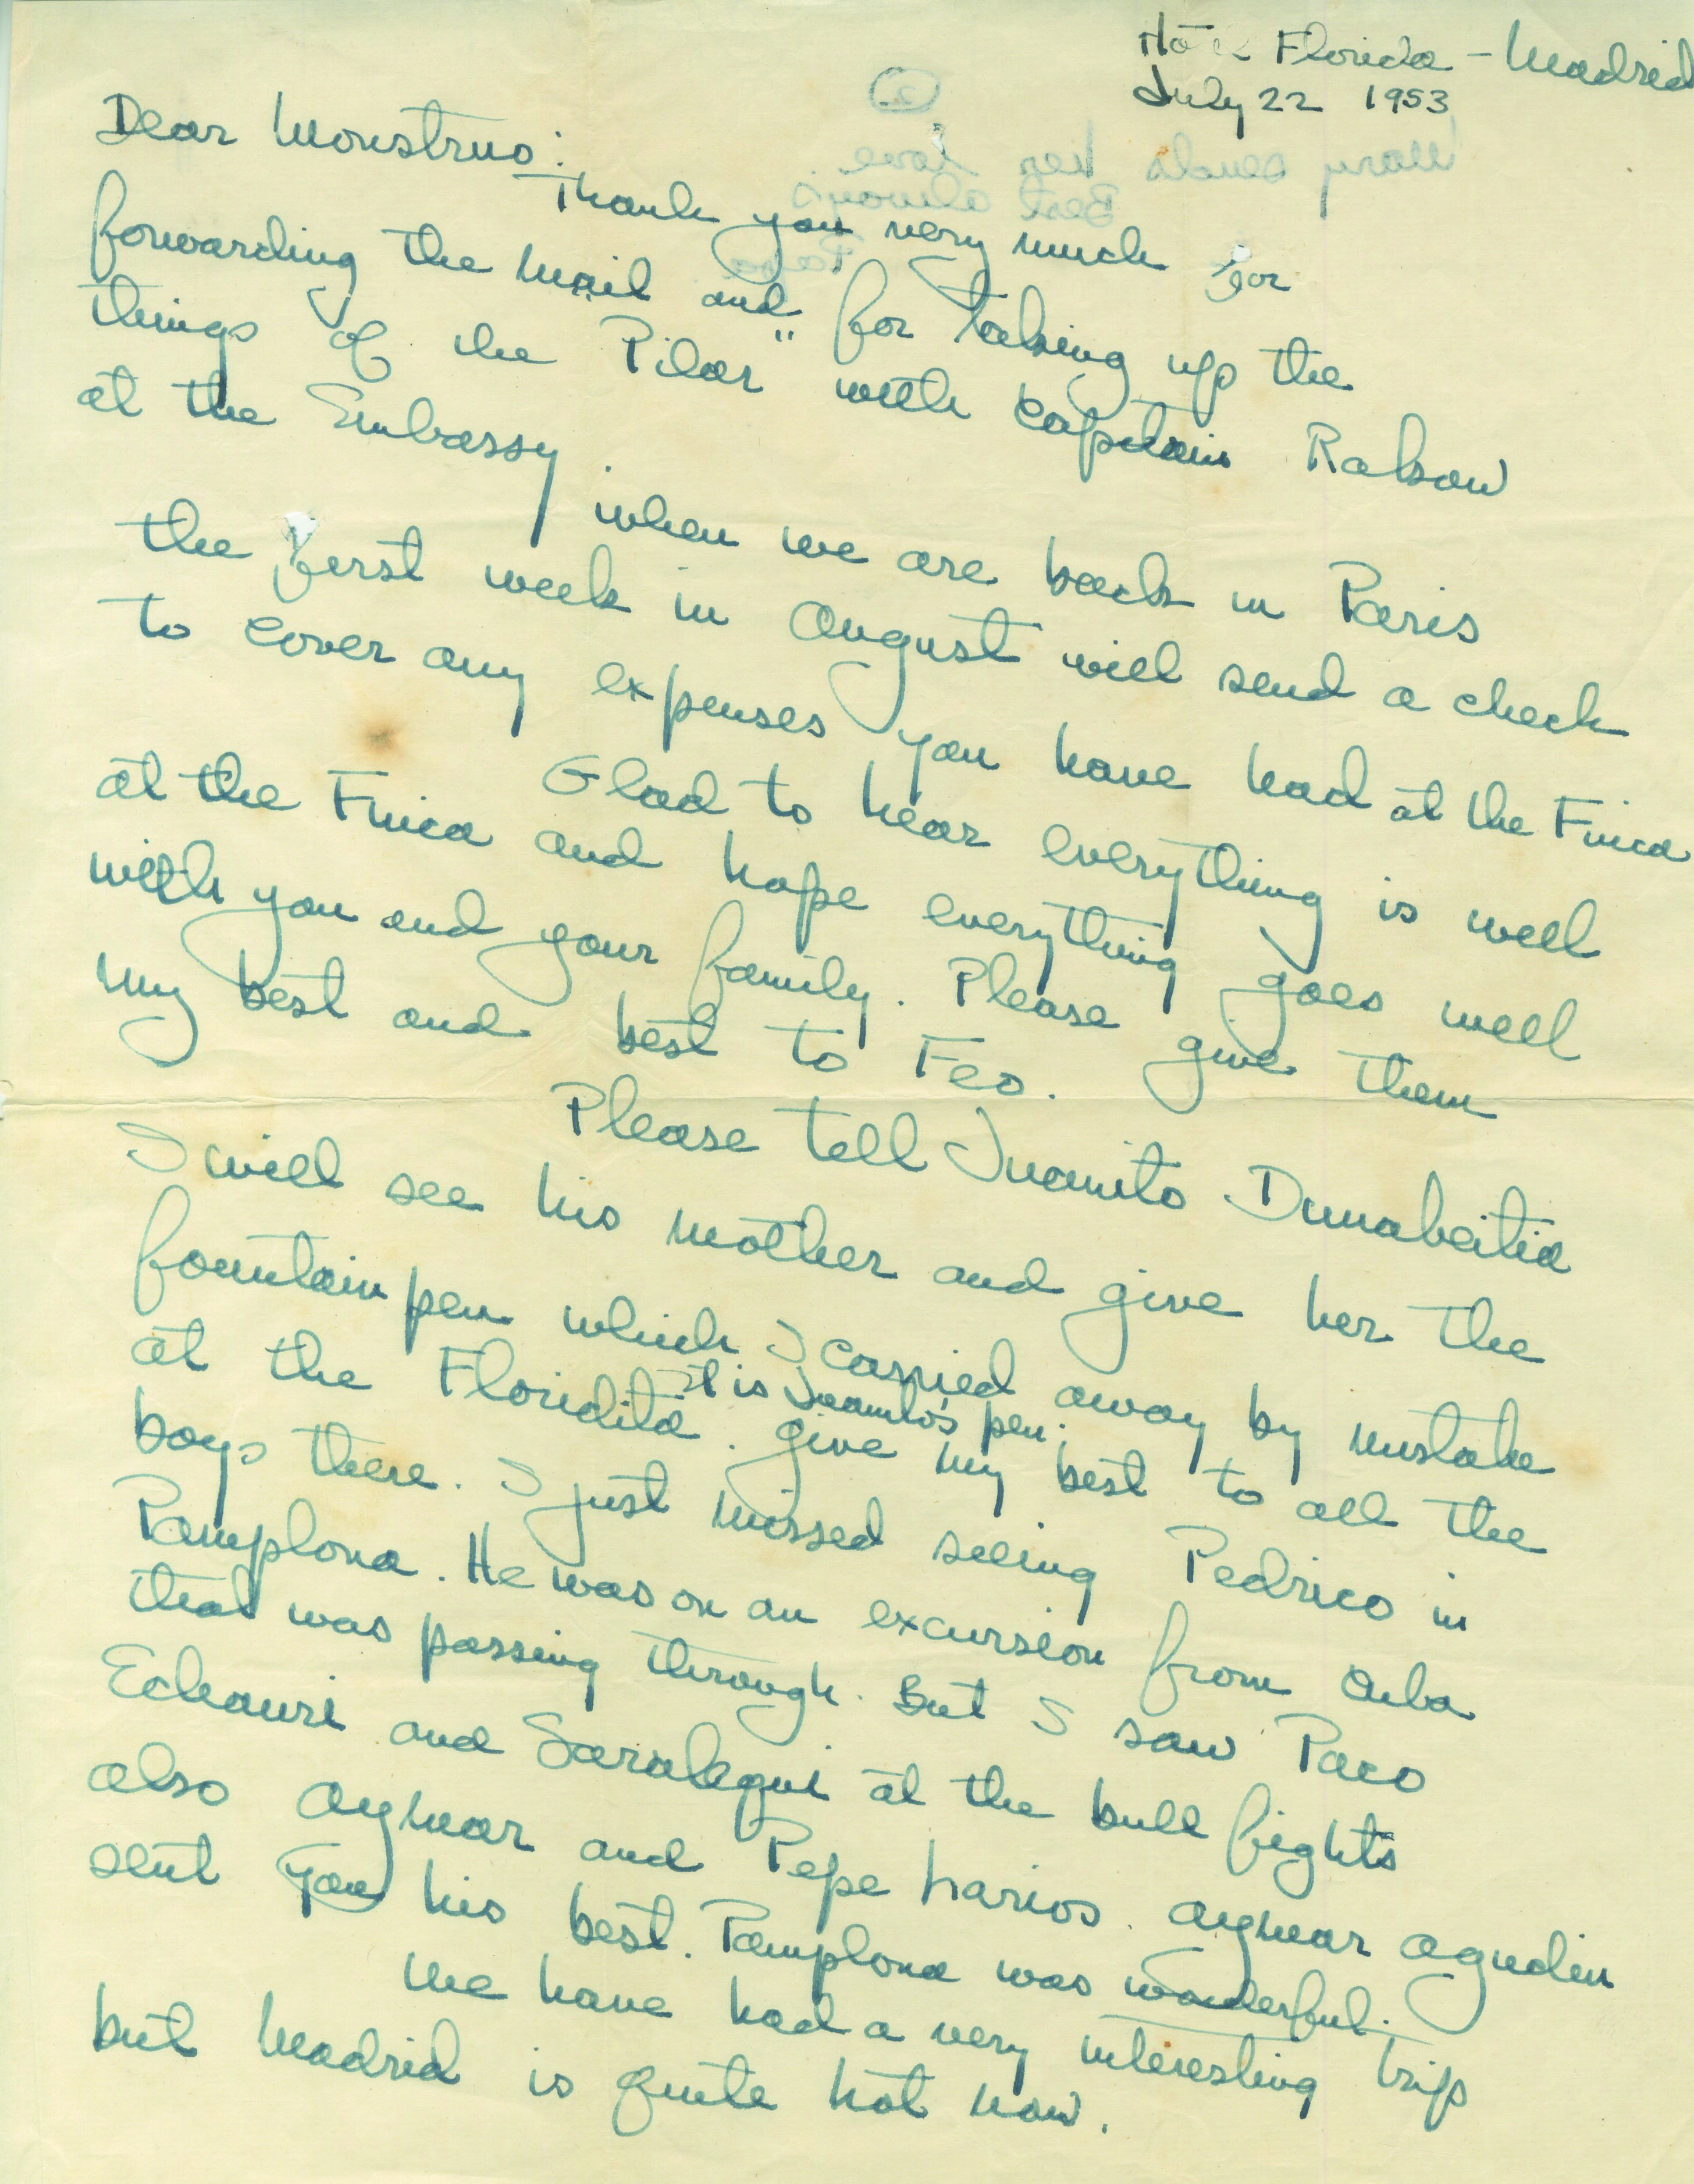 Hotel Florida - Madrid
July 22 1953
Dear Monstruo:
Thank you very much for
forwarding the mail and for taking up the
things of the Pilar" with Captain Rabsow
at the Embassy.
when we are back in Paris
the first week in August will send a check
to cover any expenses you have had at the Finca
Glad to hear everything is well
at the Finca and hope everything goes well
with you and your family. Please give them
my best and best to Feo.
Please tell Juanito Dunabeitia
I will see his mother and give her the
fountain pen which I carried away by mistake
at the Floridita. It is Juanito's pen. Give my best to all the
boys there. I just missed seeing Pedrico in
Pamplona. He was on an excursion from Cuba
that was passing through. But I saw Paco
Echauri and Saralegui at the bull fights
also Aymar and Pepe Larios. Aymar Agudin
sent you his best. Pamplona was wonderful.
We have had a very interesting trip
but Madrid is quite hot now.
2
Mary sends her love
Best always
Papa